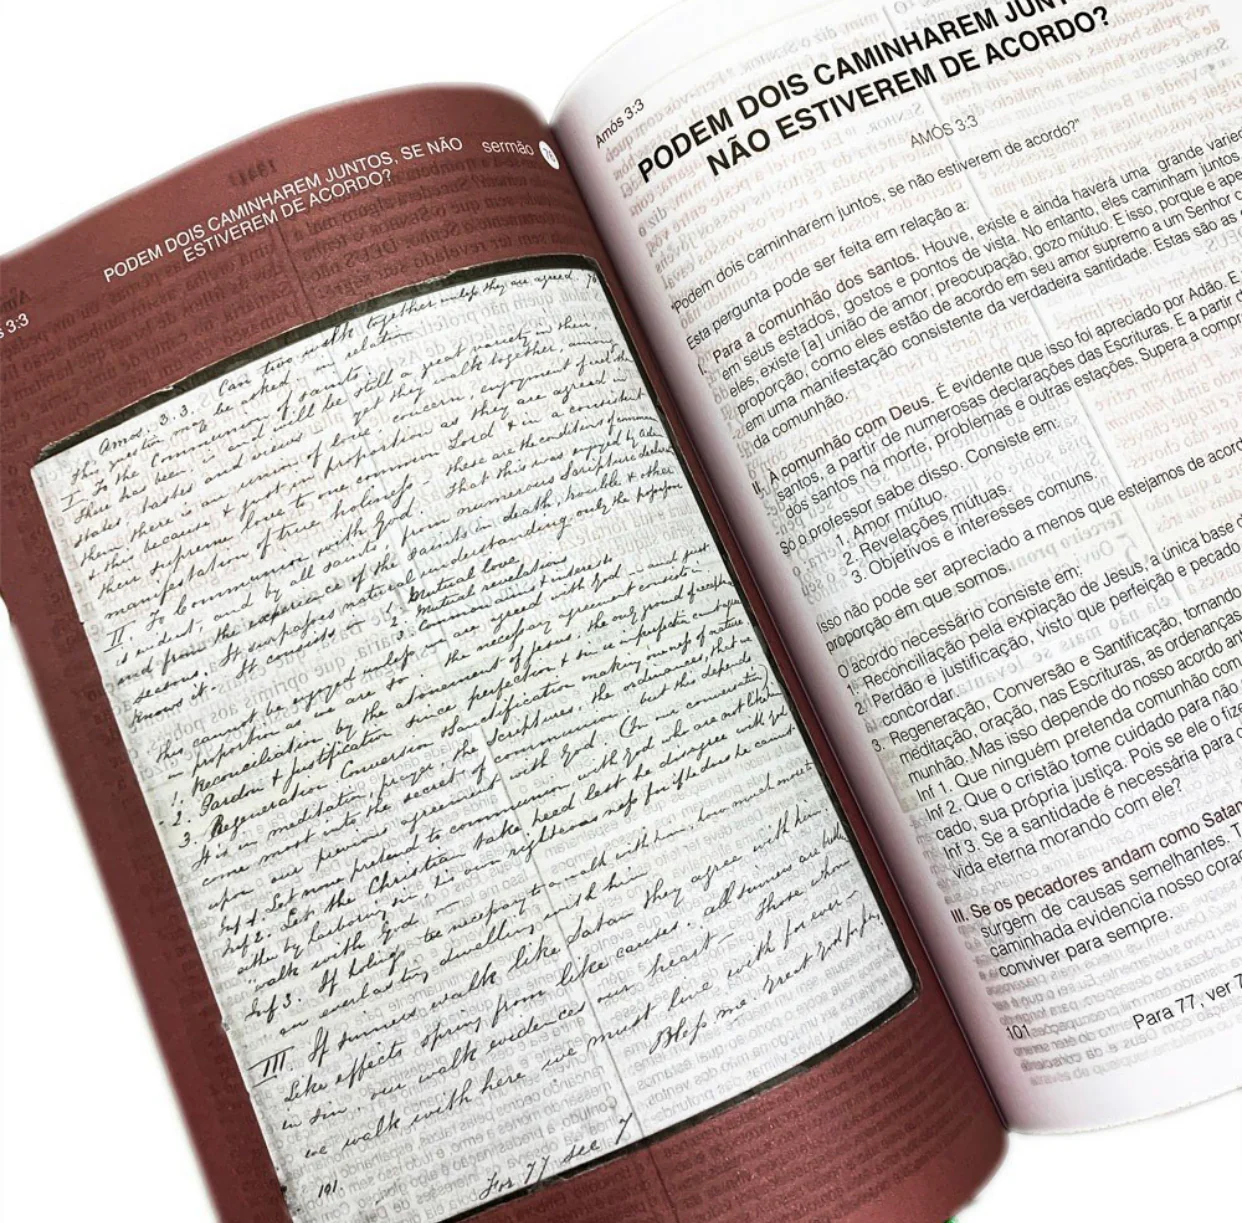 3:3
PODEM DOIS CAMINHAREM JUNTOS, SE NÃO
ESTIVEREM DE ACORDO?
sermão 76
Amos. 3.3. Can two walk together unless they are agreed. 76
This question may be asked relation
I. To the Communion of saints.
There has been, is and will be still a great variety in their
states tastes and views yet they walk together, mutual
them there is an union of love, concern, enjoyment of
& this because & just in proportion as they are agreed in
their supreme love to one common Lord & in a consistent
manifestation of true holiness. These are the conditions of
II To Communion with God. That this was enjoyed by Adam
is evident, and by all saints from numerous Scripture
and from the experience of the saints in death, trouble & other
seasons. It surpasses natural understanding: only the
knows it. It consists in 1. Mutual love
2. Mutual revelations
3. Common & interests
This cannot be enjoyed unless we are agreed with God and just
in proportion as we are so. The necessary agreement consists in
1. Reconciliation by the atonement of Jesus, the only ground of
2. Pardon & justification, since perfection & sin
3. Regeneration Conversion Sanctification making
It is in meditation, prayer the Scriptures, the ordinances, that we
come most into the secret of communion, but this depends
upon our previous agreement with God.
Inf 1. Let none pretend to communion with God who are not
Inf 2. Let the Christian take heed lest he disagree with God
either by his own righteousness for if he does he cannot
"walk with God"
Inf 3. If holiness be necessary to a walk with him, how much more to
an everlasting dwelling with him
III. If sinners walk like Satan they agree with him
Like effects spring from like causes. all sinners are
in sin. our walk evidences our heart— Those whom
we walk with here we must live with for ever—
Bless me. Great God for
101.
For 77 see 7
Amós 3:3
PODEM DOIS CAMINHAREM
NÃO ESTIVEREM DE ACORDO?
AMÓS 3:3
"Podem dois caminharem juntos, se não estiverem de acordo?"
Esta pergunta pode ser feita em relação a:
I. Para a comunhão dos santos. Houve, existe e ainda haverá uma grande
em seus estados, gostos e pontos de vista. No entanto, eles caminham juntos
eles, existe [a] união de amor, preocupação, gozo mútuo. E isso, porque e
proporção, como eles estão de acordo em seu amor supremo a um Senhor
em uma manifestação consistente da verdadeira santidade. Estas são as
da comunhão.
II. A comunhão com Deus. É evidente que isso foi apreciado por Adão. E
santos, a partir de numerosas declarações das Escrituras. E a partir
dos santos na morte, problemas e outras estações. Supera a
Só o professor sabe disso. Consiste em:
1. Amor mútuo.
2. Revelações mútuas.
3. Objetivos e interesses comuns.
Isso não pode ser apreciado a menos que estejamos de
proporção em que somos.
O acordo necessário consiste em:
1. Reconciliação pela expiação de Jesus, a única base
2. Perdão e justificação, visto que perfeição e pecado
concordar.
3. Regeneração, Conversão e Santificação, tornando
meditação, oração, nas Escrituras, as ordenanças
munhão. Mas isso depende do nosso acordo
Inf 1. Que ninguém pretenda comunhão com
Inf 2. Que o cristão tome cuidado para não
cado, sua própria justiça. Pois se ele o
Inf 3. Se a santidade é necessária para
vida eterna morando com ele?
III. Se os pecadores andam como
surgem de causas semelhantes.
caminhada evidencia nosso
conviver para sempre.
101
Para 77, ver